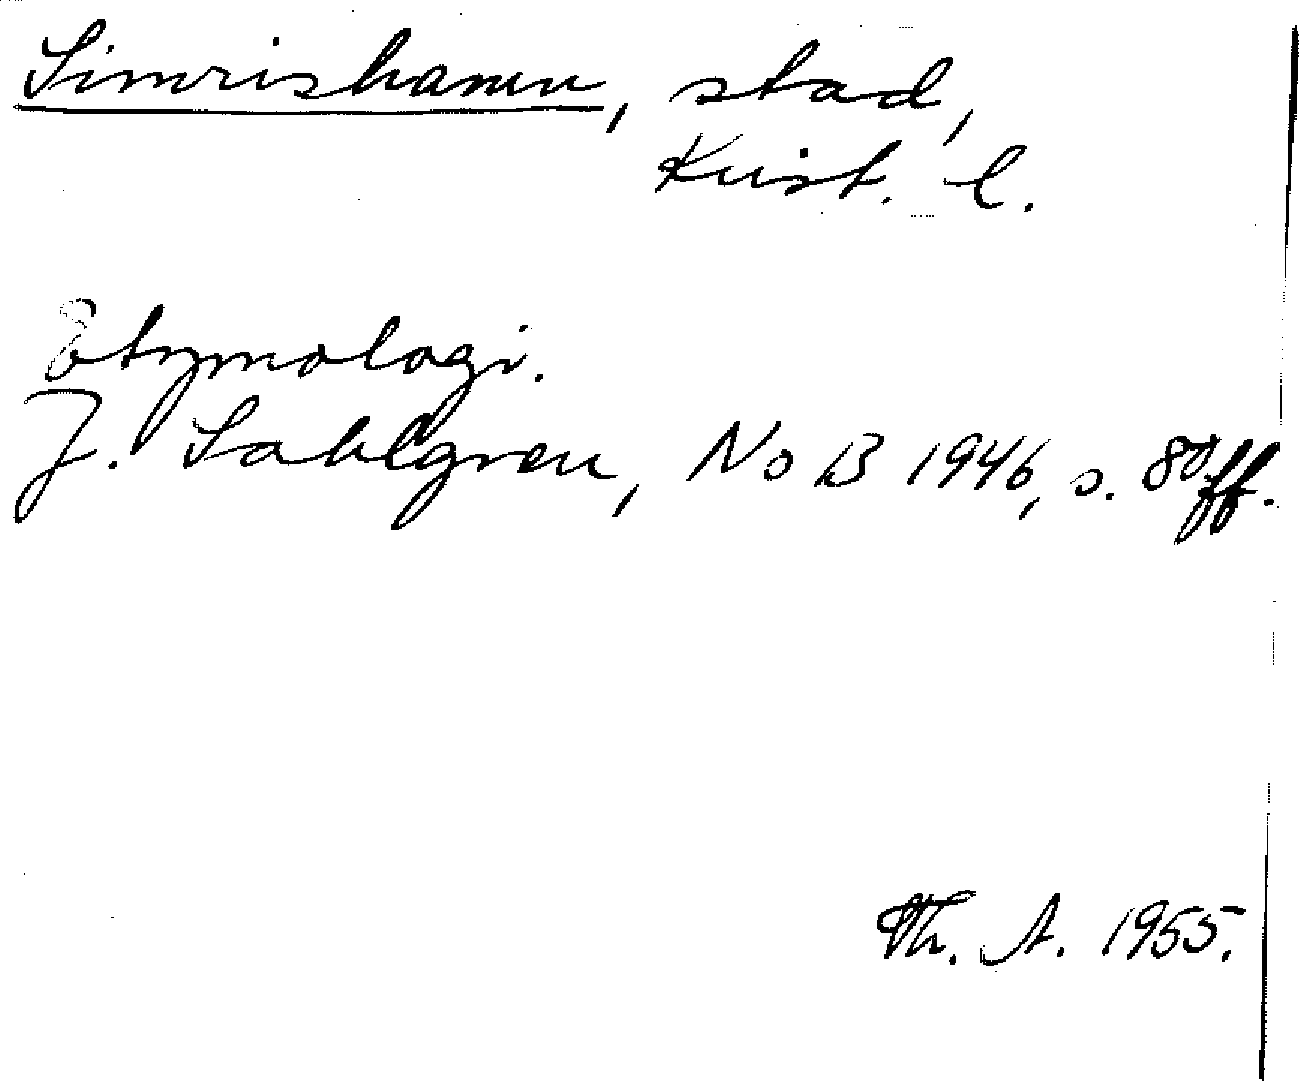 Simrishamn, stad,
Krist. l.
Etymologi.
J. Sahlgren, NoB 1946, s. 80 ff.
Th. A. 1955.